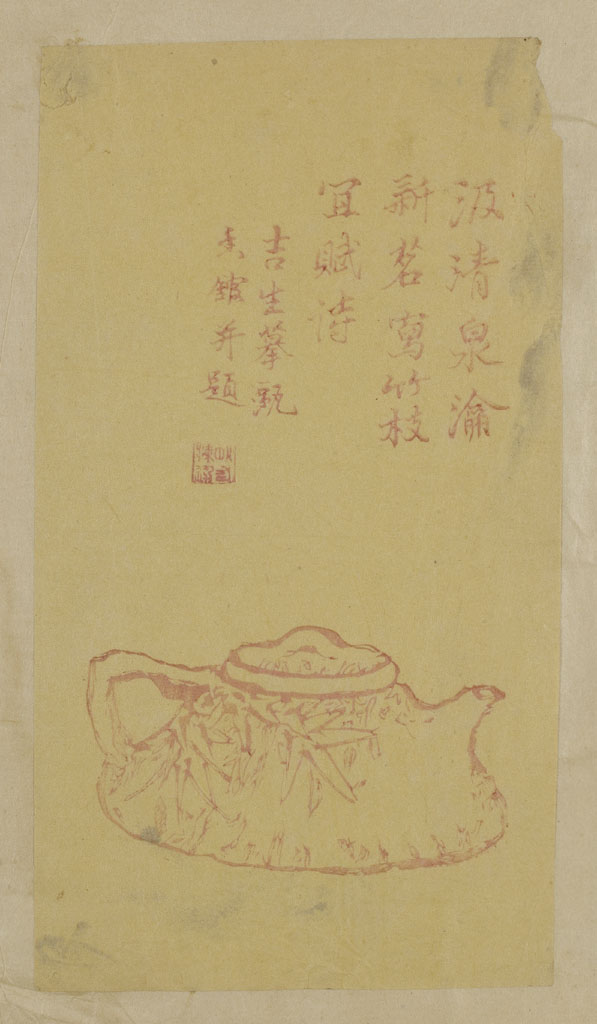 汲清泉瀹
新茗寫竹枝
宜賦詩
吉生摹甎
香館并題